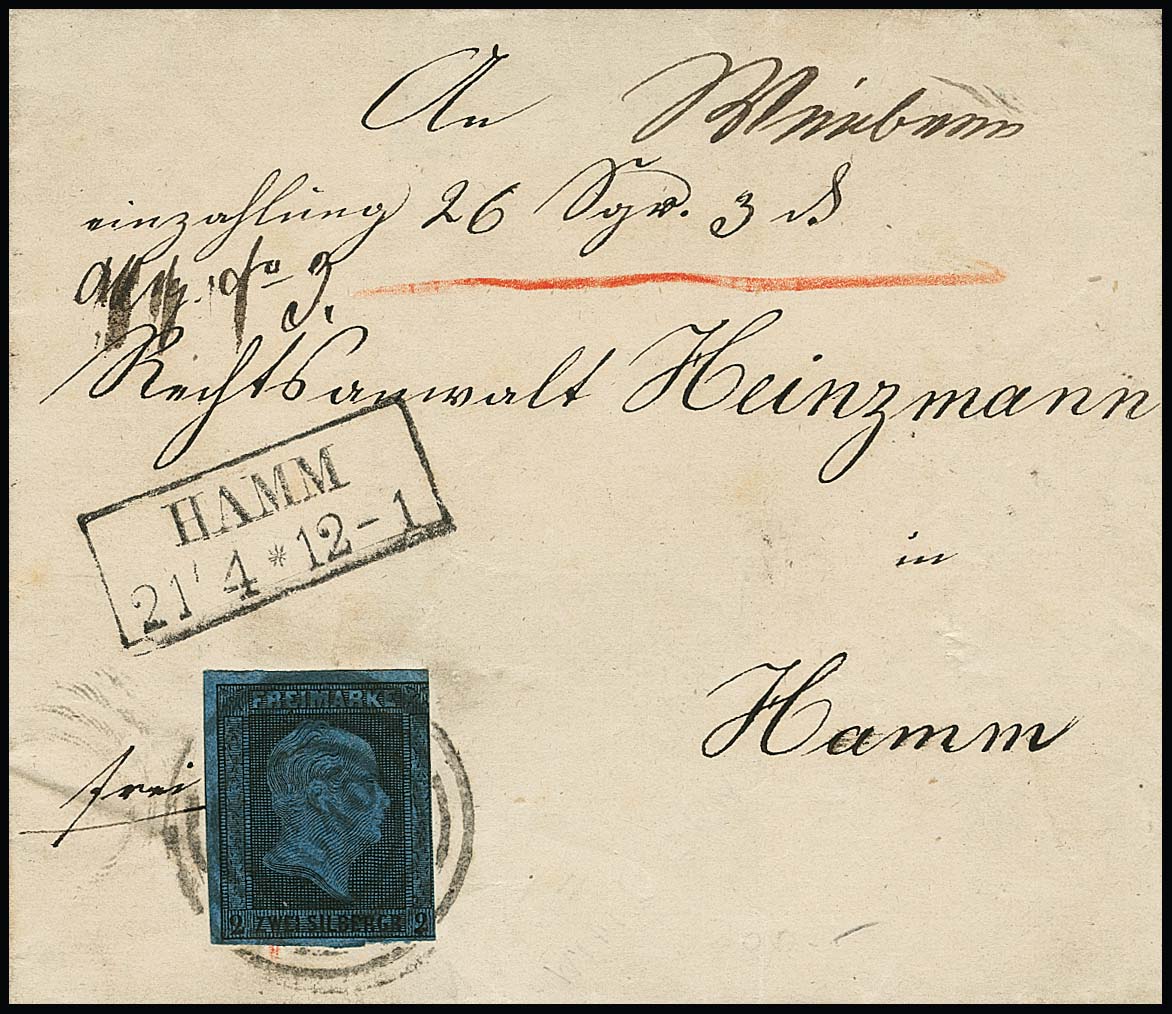 An
einzahlung 26 Sgr. 3 d
Rechtsanwalt Heinzmann
HAMM
21 4 * 12 - 1
in
Hamm
frei
FREIMARKE
2 ZWEI SILBERGR 2